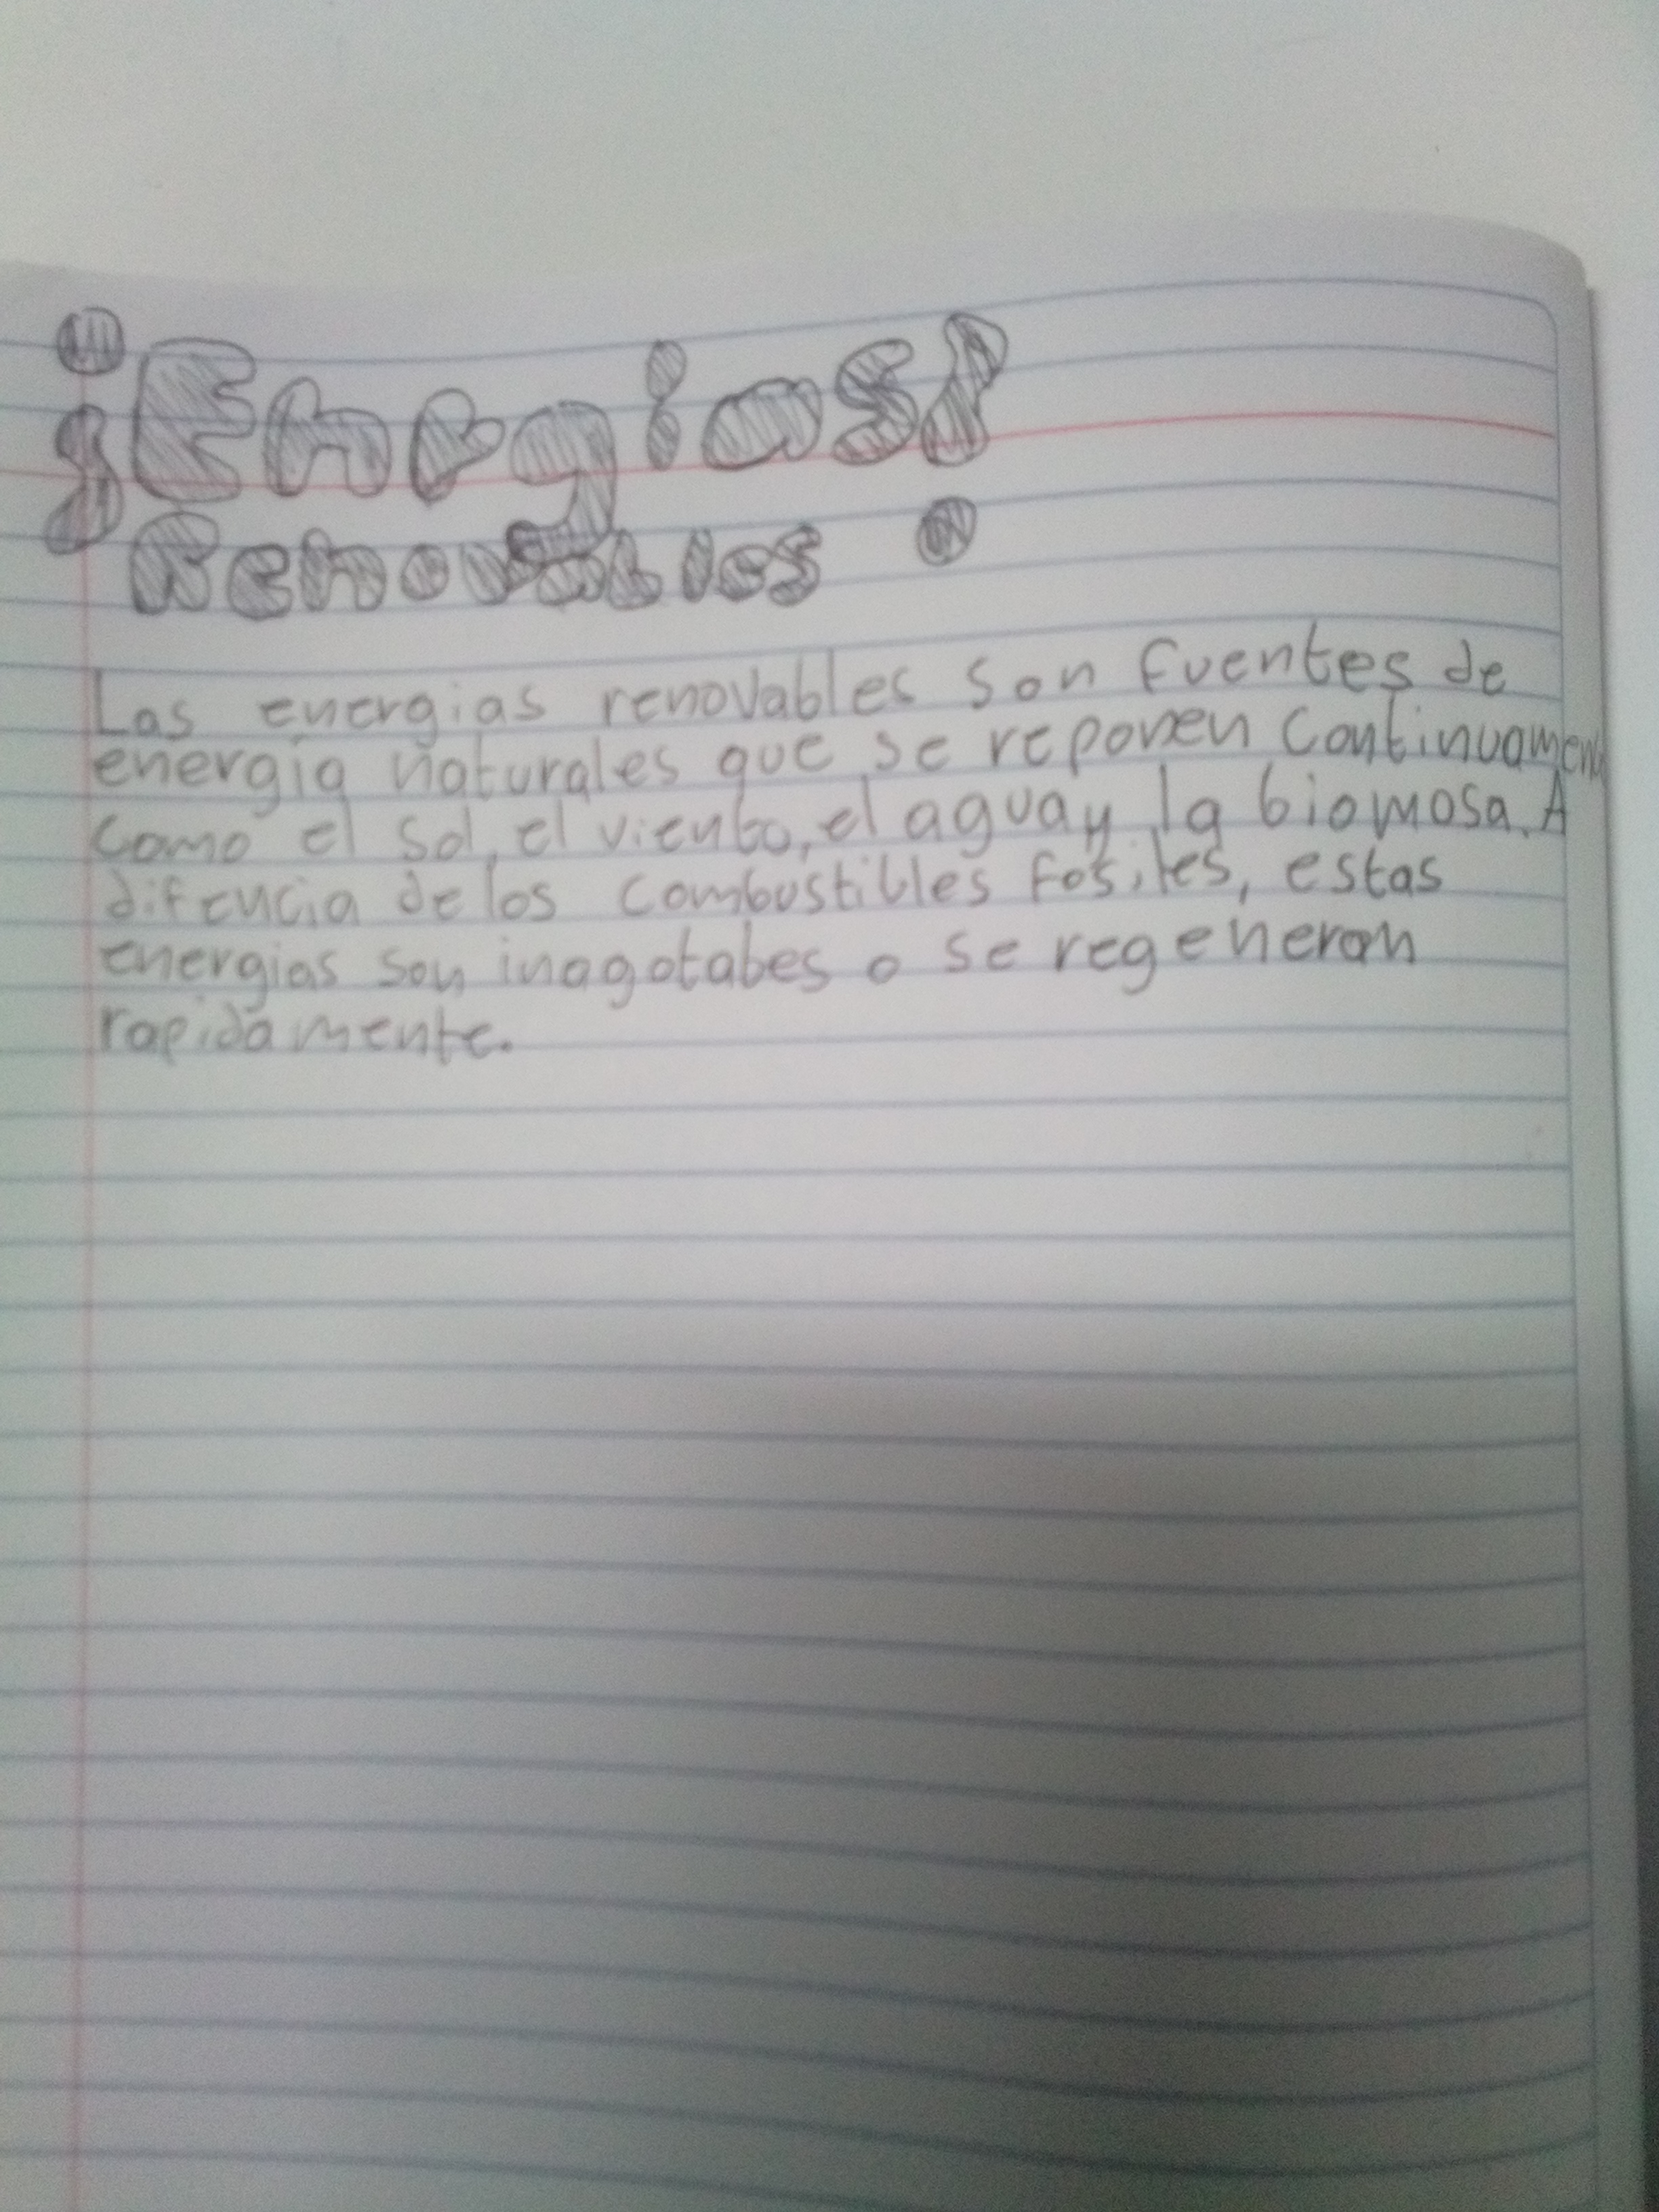 ¡Enrgias!
Renovables
Las energias renovables son fuentes de
energia naturales que se reponen continuamen
como el sol, el viento, el agua y la biomosa. A
difencia de los combustibles fosiles, estas
energias son inagotabes o se regeneran
rapidamente.